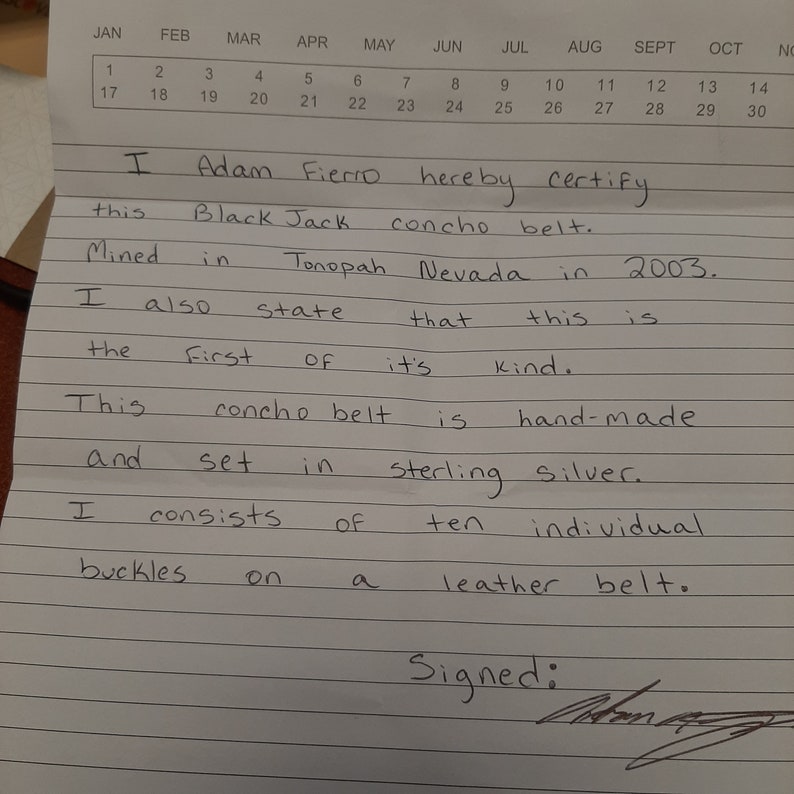 JAN FEB MAR APR MAY JUN JUL AUG SEPT OCT
1 2 3 4 5 6 7 8 9 10 11 12 13 14
17 18 19 20 21 22 23 24 25 26 27 28 29 30
I Adam Fierro hereby certify
this Black Jack concho belt.
Mined in Tonopah Nevada in 2003.
I also state that this is
the first of it's kind.
This concho belt is hand-made
and set in sterling silver.
I consists of ten individual
buckles on a leather belt.
Signed:
Adam